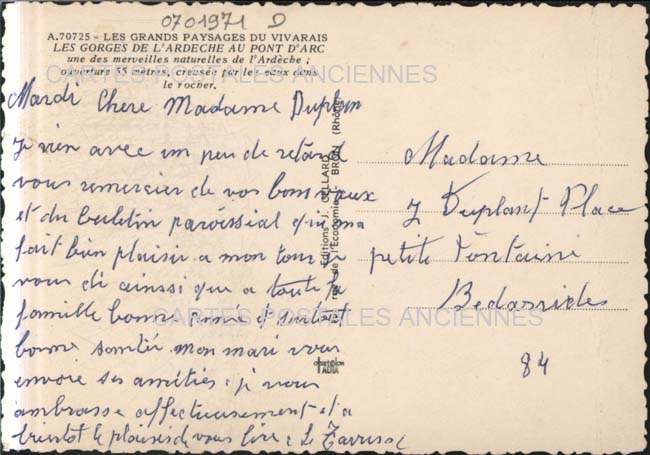 0701971 D
A.70725 - LES GRANDS PAYSAGES DU VIVARAIS
LES GORGES DE L'ARDECHE AU PONT D'ARC
une des merveilles naturelles de l'Ardèche ;
ouverture 55 mètres, creusée par les eaux dans
le rocher.
CARTES POSTALES ANCIENNES
Mardi Chere Madame Duplan
Je vien avec un peu de retard
vous remercier de vos bons vœux
et du buletin paroissial qui ma
fait bien plaisir a mon tour je
vous di ainssi que a toute la
famille bonne année et surtout
bonne santée mon mari vous
envoie ses amitiés, je vous
ambrasse affectueusement et a
bientot le plaisir de vous lire
Editions J. CELLARD
rue de l'Economie - BRON (Rhône)
CARTES POSTALES ANCIENNES
Madame
J Duplant Place
petite Fontaine
Bedarrides
84